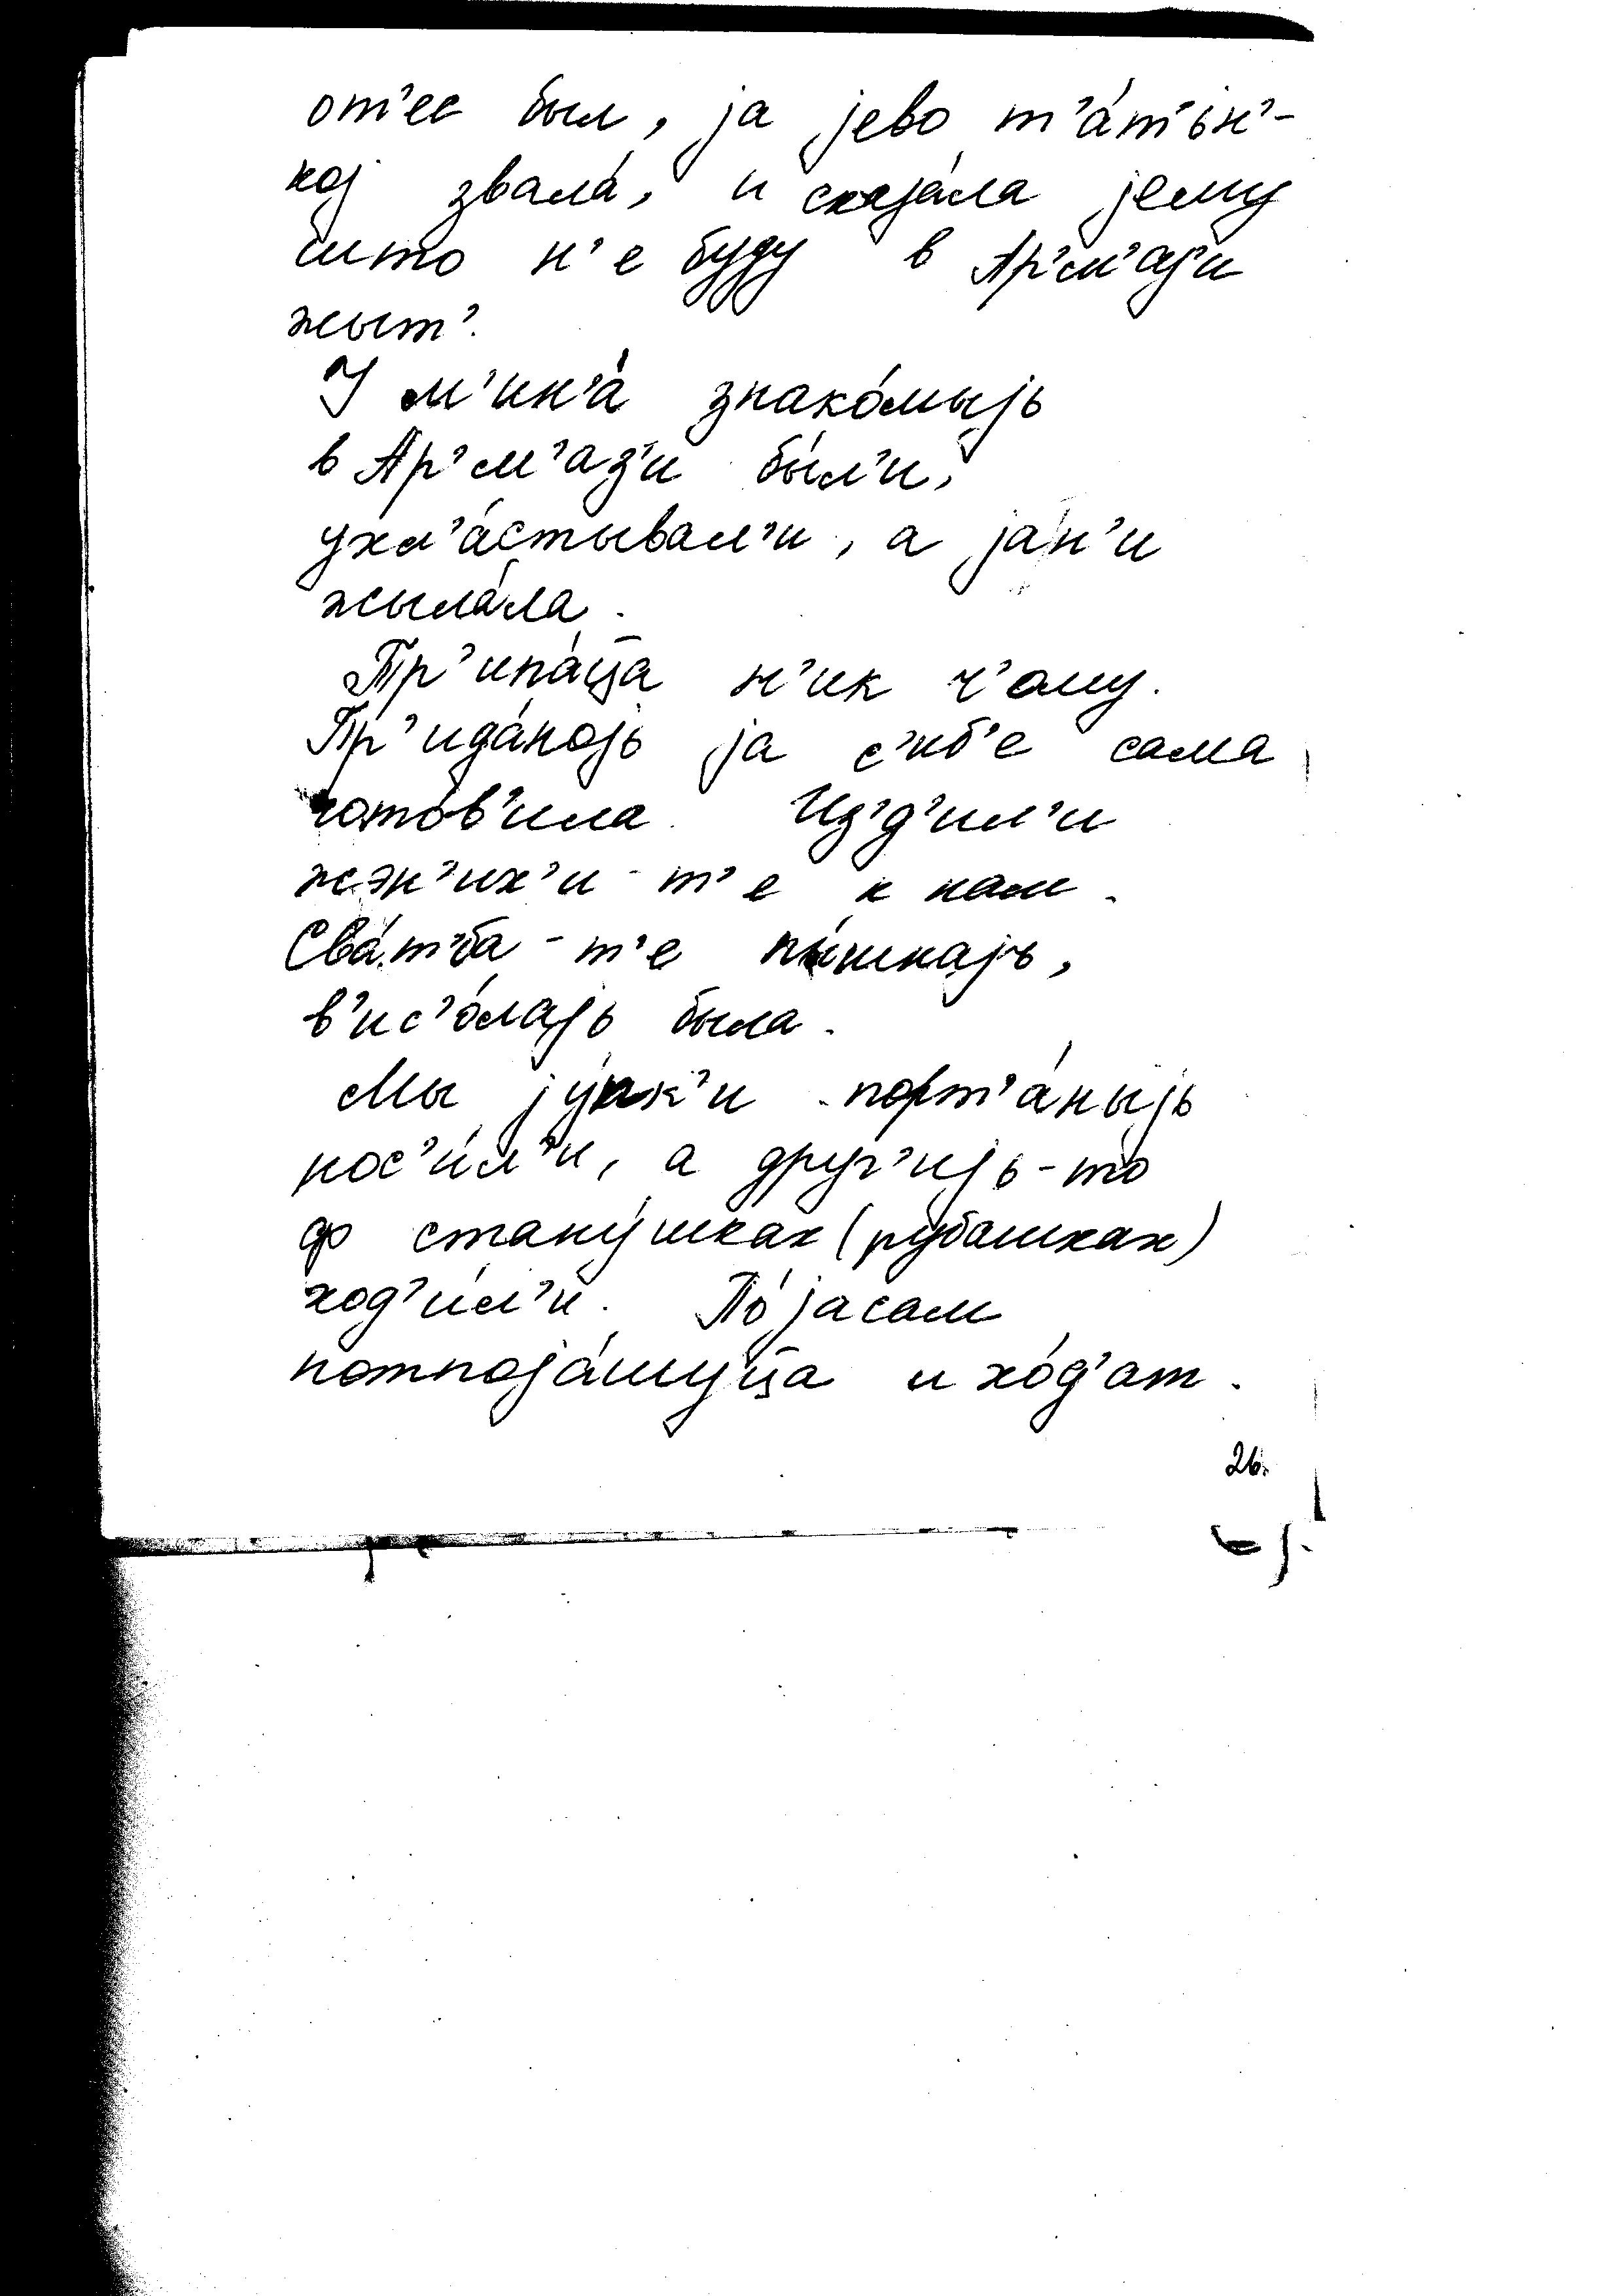 от'ес был, ја јево т'а́т'ін'-
кој звала́, и сказа́ла јему
што н'е буду в Ар'м'аз'и
жыт'.
У м'ин'а́ знако́мыјь
в Ар'м'аз'и бы́л'и,
ухл'а́стывал'и, а ја н'и
жыла́ла.
Тр'ипа́ц̄а н'ик ч'ому.
Пр'ида́нојь ја с'иб'е сама
гото́в'ила. Из'д'ил'и
жэн'их'и-т'е к нам.
Сва́т'ба-т'е пы́шнајь,
в'ис'о́лајь была.
Мы јупк'и порт'а́ныјь
нос'и́л'и, а друг'ијь-то
ф стану́шках (рубашках)
ход'и́л'и. По́јасам
потпоја́шуц̄а и хо́д'ат.
26.